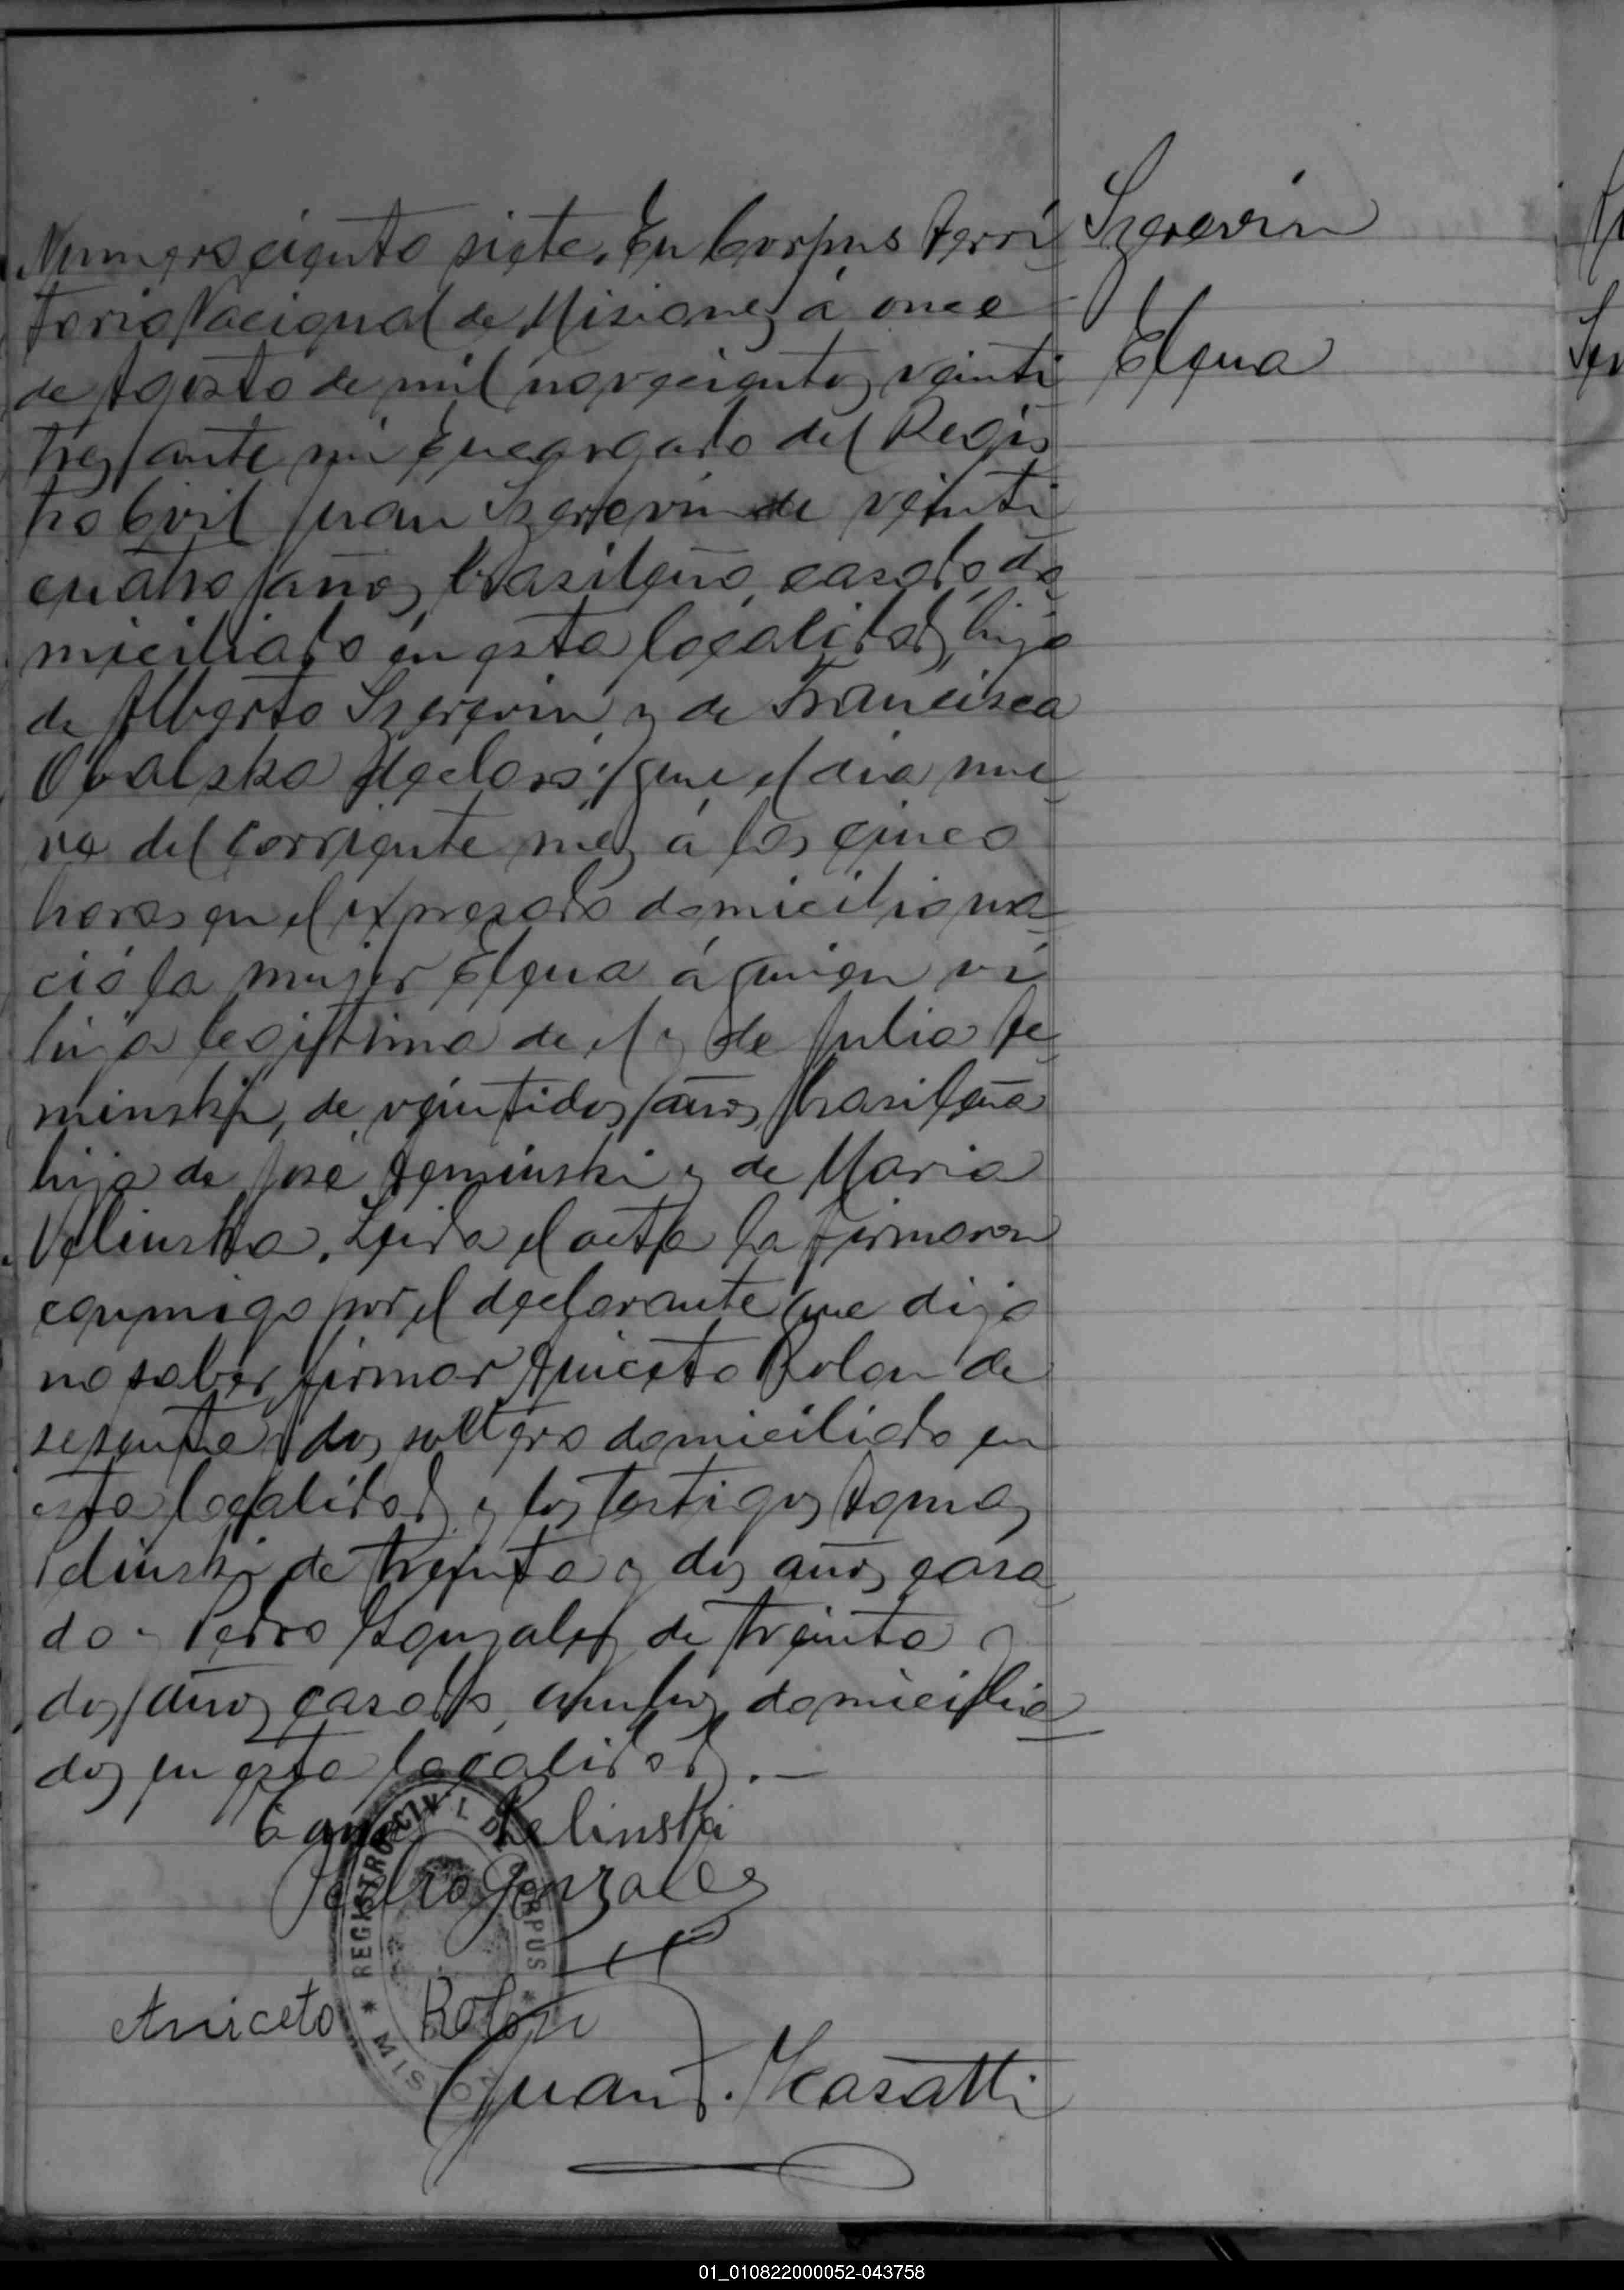 Numero ciento siete. En Corpus Terri
torio Nacional de Misiones á once
de Agosto de mil novecientos veinti
tres, ante mi Encargado del Regis
tro Civil Juan Szerevin de veinti
cuatro años, brasileño, casado, do
miciliado en esta localidad, hijo
de Alberto Szerevin y de Francisca
Obalska declaró: que el dia nue
ve del corriente mes á las cinco
horas en el expresado domicilio na
ció la mujer Elena á quien vi
hija legitima de el y de Julia Je
minski, de veintidos años, brasileña
hija de José Jeminski y de Maria
Velinska. Leida el acta la firmaron
conmigo por el declarante que dijo
no saber firmar Aniceto Rolon de
sesenta dos, soltero domiciliado en
esta localidad y los testigos Tomas
Pelinski de treinta y dos años, casa
do y Pedro Gonzalez de treinta y
dos años casado, ambos domicilia
dos en esta localidad. —
Pelinski
Pedro Gonzalez
Aniceto Rolon
Juan Casatti
REGISTRO CIVIL DE CORPUS * MISIONES *
Szerevin
Elena
01_010822000052-043758